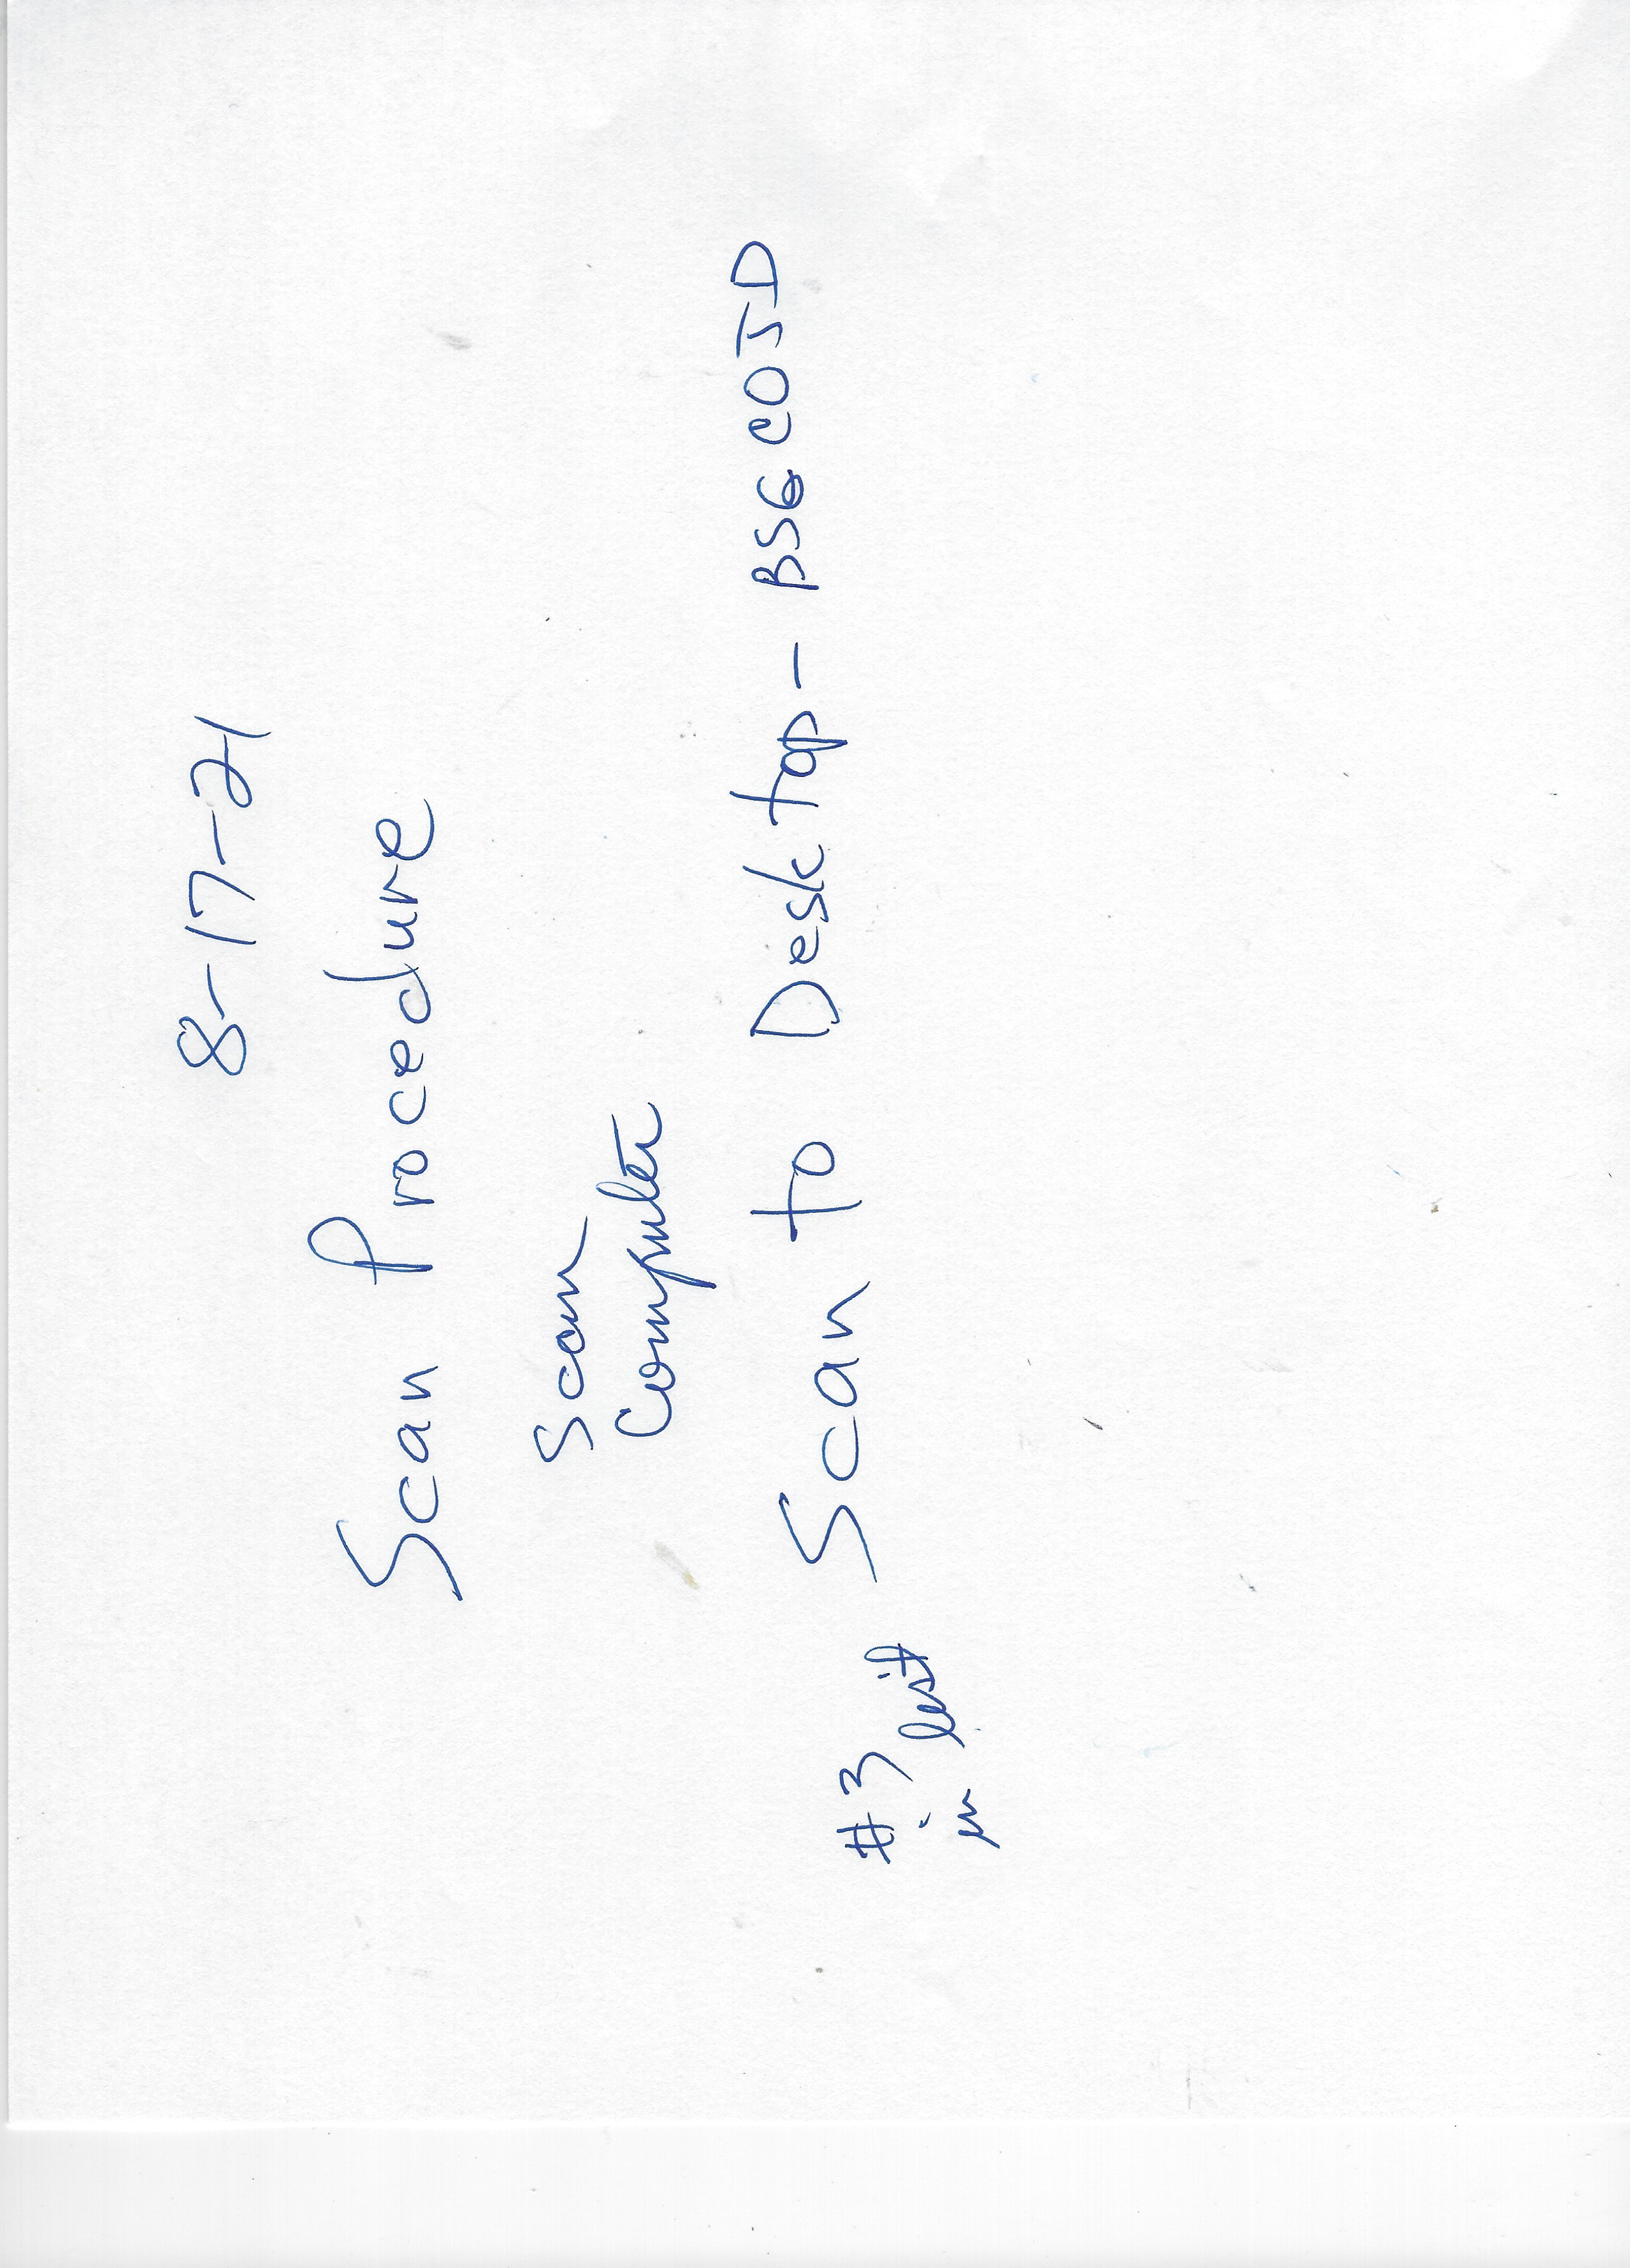 8-17-21
Scan Procedure
Scan
Computer
Scan to Desktop - BSGCOJD
#3
in list